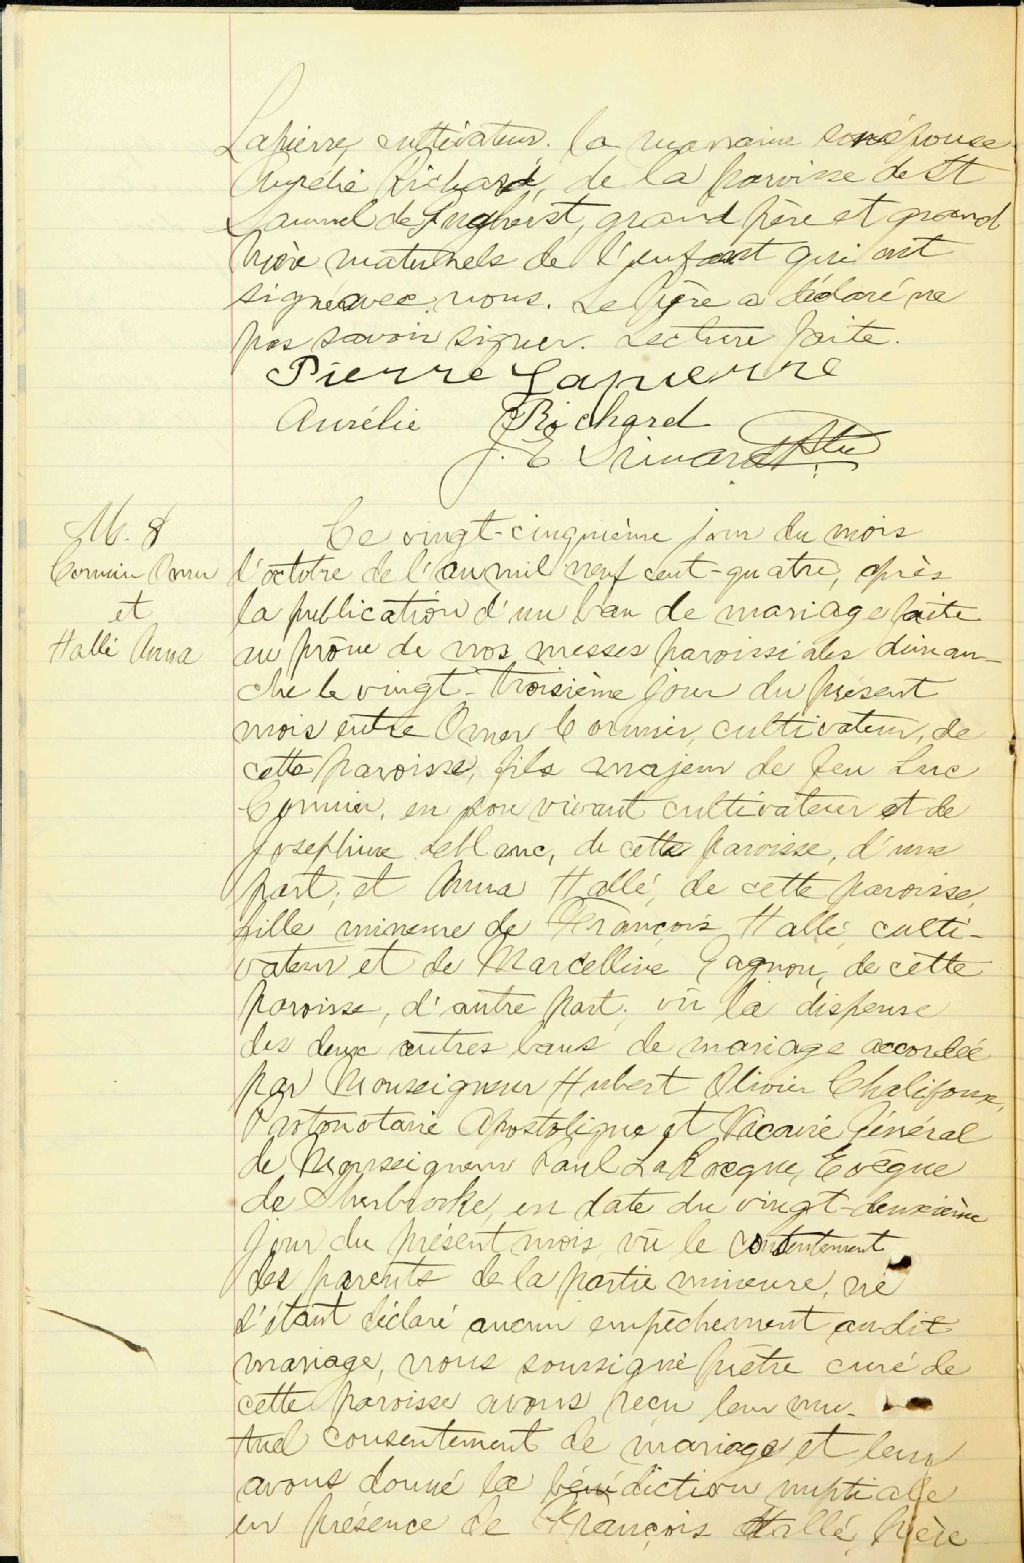 Lapierre, cultivateur. la marraine son épouse
Aurélie Richard, de la paroisse de St
de, grand père et grand
mère maternels de l'enfant qui ont
signé avec nous. Le père a déclaré ne
pas savoir signer. Lecture faite.
Pierre Lapierre
Aurélie Richard
J. E. Simard Ptre
M. 8
Cormier Omer
et
Hallé Anna
Ce vingt-cinquième jour du mois
d'octobre de l'an mil neuf cent-quatre, après
la publication d'un ban de mariage faite
au prône de nos messes paroissiales diman-
che le vingt-troisième jour du présent
mois entre Omer Cormier, cultivateur, de
cette paroisse, fils majeur de feu Luc
Cormier, en son vivant cultivateur et de
Josephine Leblanc, de cette paroisse, d'une
part; et Anna Hallé, de cette paroisse,
fille mineure de François Hallé, culti-
vateur et de Marcelline Gagnon, de cette
paroisse, d'autre part; vu la dispense
des deux autres bans de mariage accordée
par Monseigneur Hubert Olivier Chalifoux,
Protonotaire Apostolique et Vicaire Général
de Monseigneur Paul LaRocque, Evêque
de Sherbrooke, en date du vingt-deuxième
jour du présent mois, vu le consentement
des parents de la partie mineure, ne
s'étant déclaré aucun empêchement au dit
mariage, nous soussigné prêtre curé de
cette paroisse avons reçu leur mu-
tuel consentement de mariage et leur
avons donné la bénédiction nuptiale
en présence de François Hallé, père